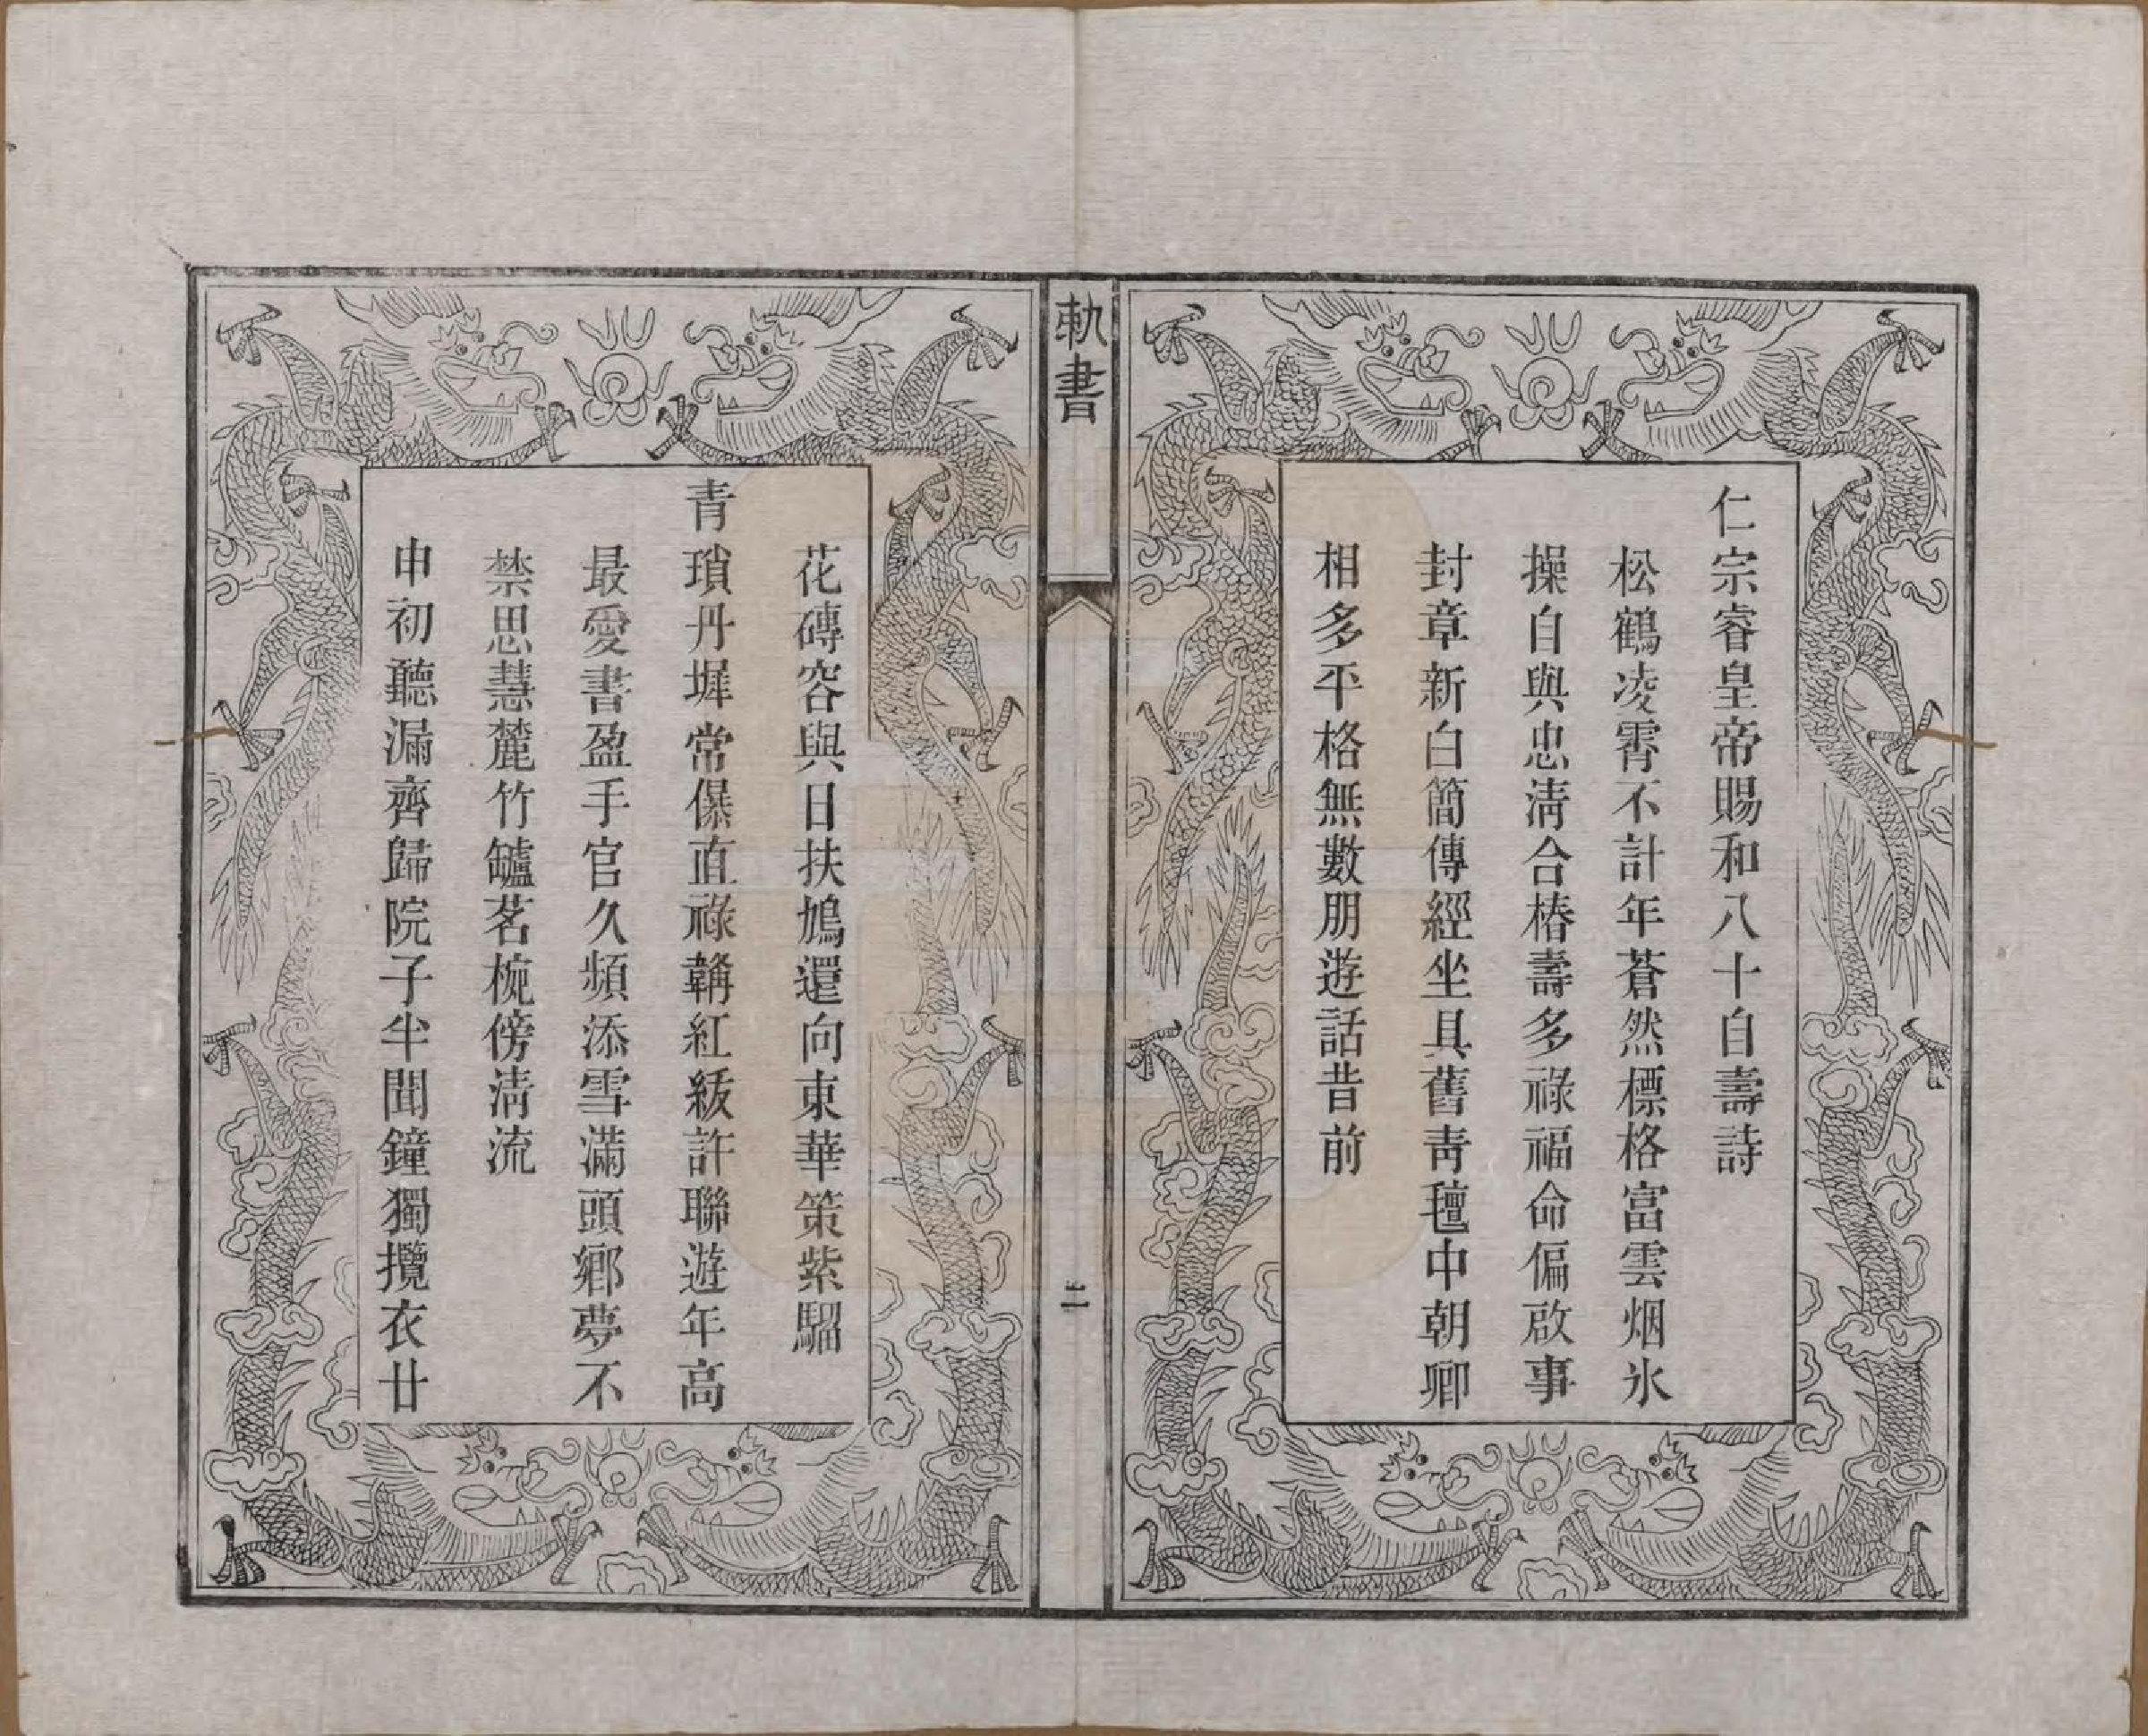 仁宗睿皇帝賜和八十自壽詩
松鶴凌霄不計年蒼然標格富雲烟氷
操自與忠淸合椿壽多祿福命偏啟事
封章新白簡傳經坐具舊靑氊中朝卿
相多平格無數朋遊話昔前
敕書
二
花磚容與日扶鳩還向東華策紫騮
青瑣丹墀常儤直祿韝紅紱許聯遊年高
最愛書盈手官久頻添雪滿頭鄉夢不
禁思慧麓竹罏茗椀傍淸流
申初聽漏齊歸院子半聞鐘獨攬衣廿